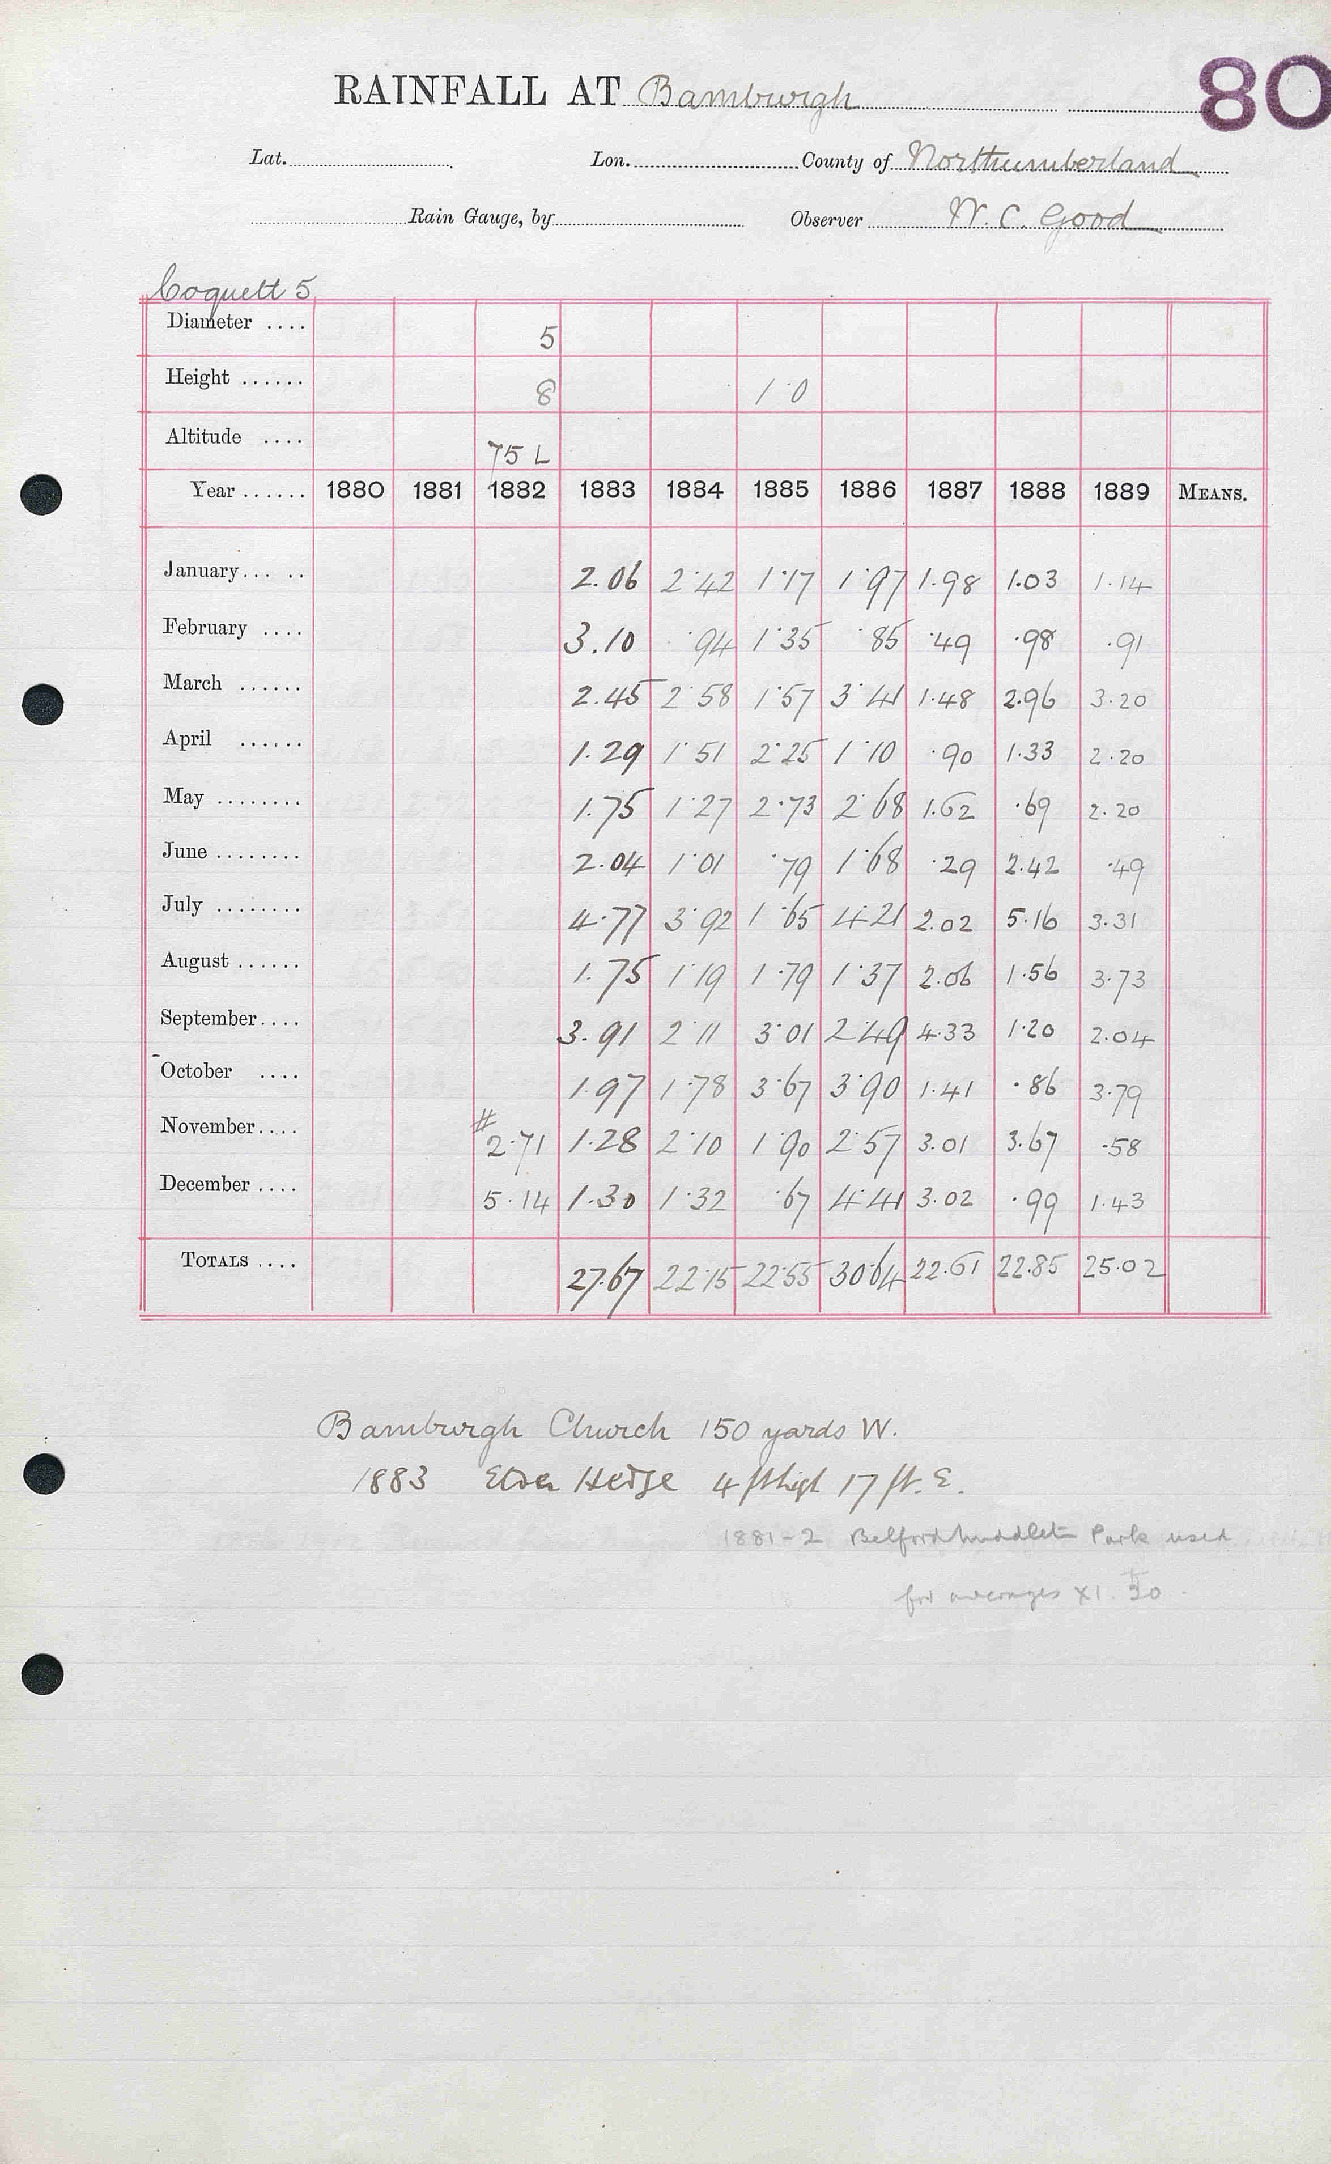 80
RAINFALL AT Bamburgh
Lat. Lon. County of Northumberland
Rain Gauge, by Observer W. C. Good
Coquett 5
Diameter .... 5
Height ...... 8 1·0
Altitude .... 75 L
Year ...... 1880 1881 1882 1883 1884 1885 1886 1887 1888 1889 MEANS.
January... .. 2.06 2·42 1·17 1·97 1.98 1.03 1.14
February .... 3.10 ·94 1·35 ·85 ·49 ·98 ·91
March ...... 2.45 2·58 1·57 3·41 1.48 2.96 3.20
April ...... 1.29 1·51 2·25 1·10 ·90 1·33 2·20
May ........ 1.75 1·27 2·73 2·68 1.62 ·69 2.20
June ........ 2.04 1·01 ·79 1·68 ·29 2.42 ·49
July ........ 4.77 3·92 1·65 4·21 2.02 5.16 3.31
August ...... 1.75 1·19 1·79 1·37 2.06 1·56 3.73
September.... 3.91 2·11 3·01 2·49 4.33 1·20 2.04
October .... 1.97 1·78 3·67 3·90 1.41 ·86 3.79
November.... # 2·71 1.28 2·10 1·90 2·57 3.01 3.67 ·58
December .... 5·14 1.30 1·32 ·67 4·41 3.02 ·99 1.43
TOTALS .... 27.67 22·15 22·55 30·64 22.61 22.85 25.02
Bamburgh Church 150 yards W.
1883 Elder Hedge 4 ft high 17 ft. E.
1881-2 Belford Park used
for averages X1.